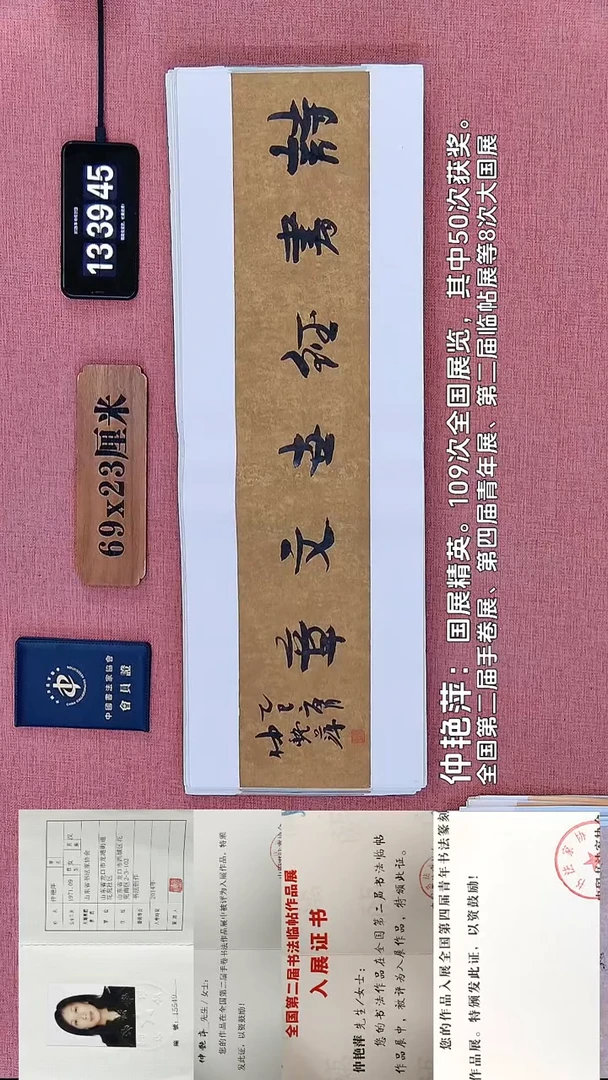 詩書經世文章
乙巳
仲艷萍
13 39 45
69x23厘米
中國書法家協會
會員證
仲艳萍：国展精英。109次全国展览，其中50次获奖。
全国第二届手卷展、第四届青年展、第二届临帖展等8次大国展
仲艳萍 先生/女士：
您的作品在全国第二届手卷书法作品展中被评为入展作品，特颁
发此证，以资鼓励！
全国第二届书法临帖作品展
入展证书
仲艳萍 先生/女士：
您的书法作品在全国第二届书法临帖
作品展中，被评为入展作品，特颁此证。
您的作品入展全国第四届青年书法篆刻
作品展。特颁发此证，以资鼓励！